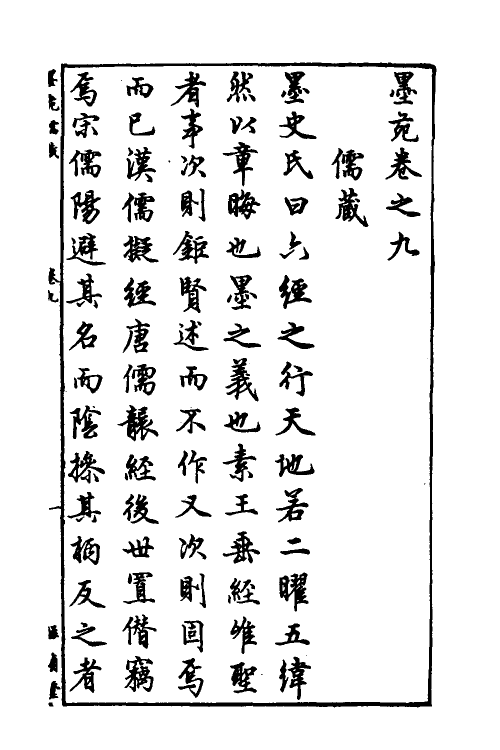 墨苑卷之九
儒藏
墨史氏曰六經之行天地若二曜五緯
然以章晦也墨之義也素王垂經唯聖
者事次則鉅賢述而不作又次則固焉
而已漢儒擬經唐儒

經後世置僭竊
焉宋儒陽避其名而陰操其柄反之者
卷九
一